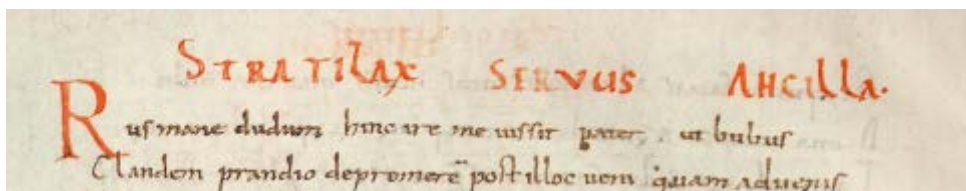 STRATILAX SERVUS ANCILLA.
Rus mane dudum hinc ire me iussit pater, ut bubus
Clandem prandio depromerē post illoc ueni